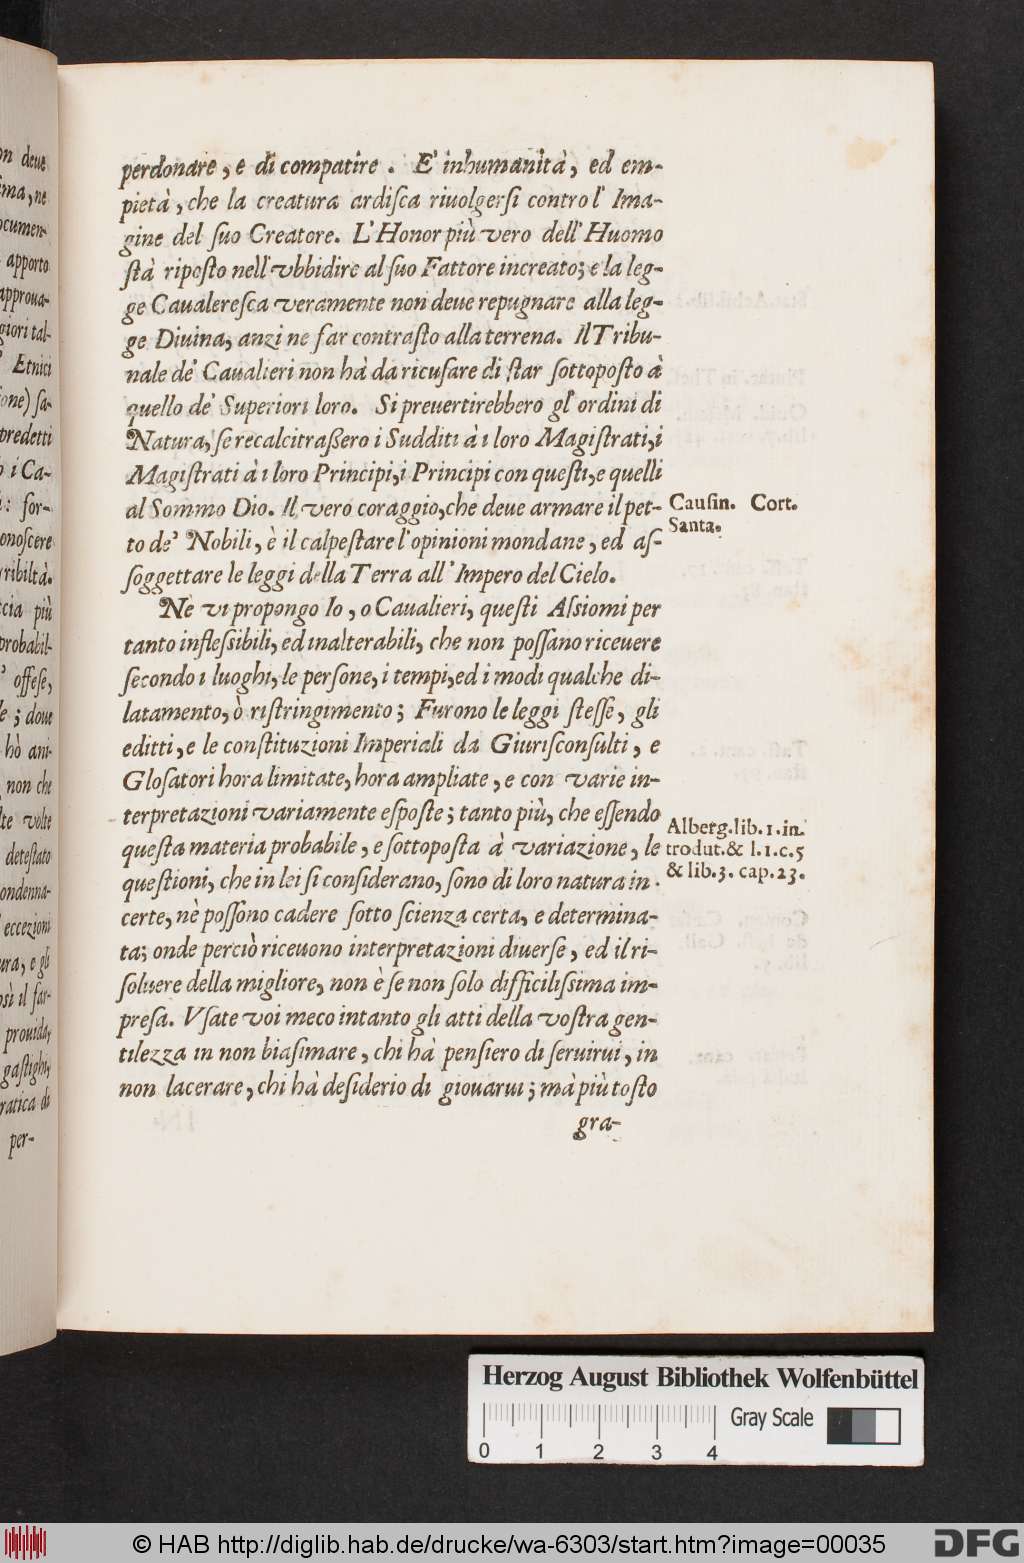 perdonare, e di compatire. E' inhumanità, ed em-
pietà, che la creatura ardiſca riuolgerſi contro l' Ima-
gine del ſuo Creatore. L'Honor più vero dell' Huomo
ſtà ripoſto nell' vbbidire al ſuo Fattore increato; e la leg-
ge Caualereſca veramente non deue repugnare alla leg-
ge Diuina, anzi ne far contraſto alla terrena. Il Tribu-
nale de' Caualieri non hà da ricuſare di ſtar ſottopoſto à
quello de' Superiori loro. Si preuertirebbero gl' ordini di
Natura, ſe recalcitraßero i Sudditi à i loro Magiſtrati, i
Magiſtrati à i loro Principi, i Principi con queſti, e quelli
al Sommo Dio. Il vero coraggio, che deue armare il pet-
to de' Nobili, è il calpeſtare l' opinioni mondane, ed aſ-
ſoggettare le leggi della Terra all' Impero del Cielo.
Causin. Cort.
Santa.
Ne vi propongo Io, o Caualieri, queſti Aſsiomi per
tanto infleſsibili, ed inalterabili, che non poſſano riceuere
ſecondo i luoghi, le perſone, i tempi, ed i modi qualche di-
latamento, ò riſtringimento; Furono le leggi ſteſſe, gli
editti, e le conſtituzioni Imperiali da Giuriſconſulti, e
Gloſatori hora limitate, hora ampliate, e con varie in-
terpretazioni variamente eſpoſte; tanto più, che eſſendo
queſta materia probabile, e ſottopoſta à variazione, le
queſtioni, che in lei ſi conſiderano, ſono di loro natura in-
certe, nè poſſono cadere ſotto ſcienza certa, e determina-
ta; onde perciò riceuono interpretazioni diuerſe, ed il ri-
ſoluere della migliore, non è ſe non ſolo difficiliſsima im-
preſa. Vſate voi meco intanto gli atti della voſtra gen-
tilezza in non biaſimare, chi hà penſiero di ſeruirui, in
non lacerare, chi hà deſiderio di giouarui; mà più toſto
gra-
Alberg. lib. 1. in
trodut. & l. 1. c. 5
& lib. 3. cap. 23.
on deue
ſima, ne
ocumen-
apporto
approua-
giori tal-
Etnici
ione) ſa-
predetti
o i Ca-
: for-
onoſcere
rribiltà.
ccia più
probabil-
offeſe,
le; doue
hò ani-
non che
lte volte
deteſtato
condenna-
eccezioni
ura, e gli
osì il far-
prouida,
gaſtighi,
ratica di
per-
Herzog August Bibliothek Wolfenbüttel
Gray Scale
0 1 2 3 4
© HAB http://diglib.hab.de/drucke/wa-6303/start.htm?image=00035
DFG